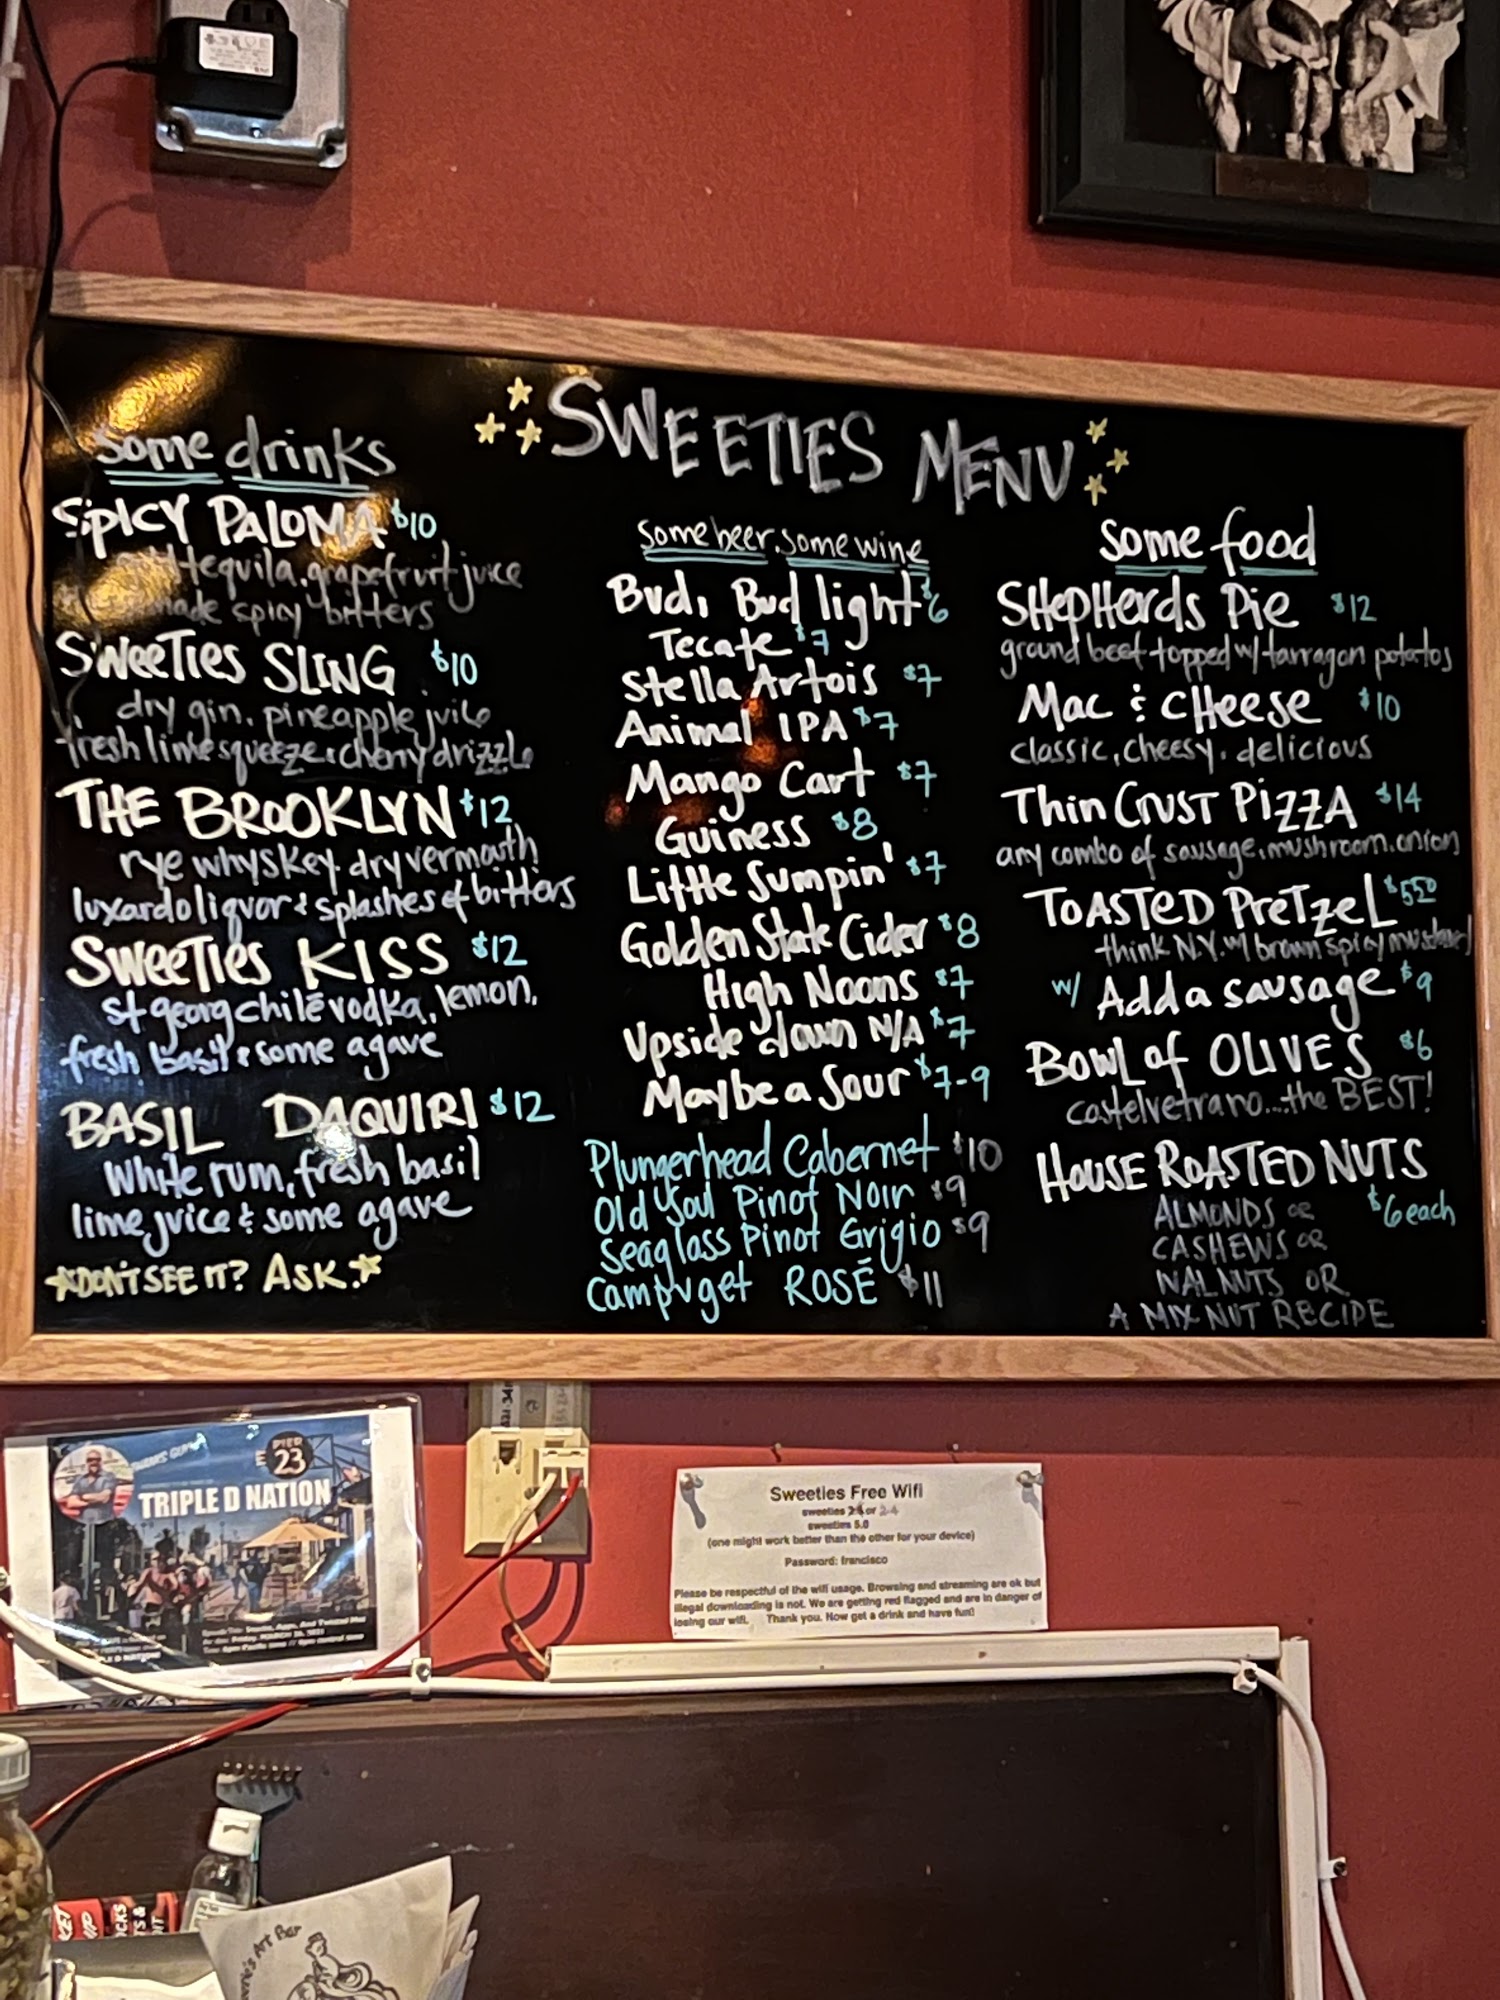 SWEETIES MENU
some drinks
SPICY PALOMA $10
tequila, grapefruit juice
made spicy bitters
SWEETIES SLING $10
dry gin, pineapple juice
fresh lime squeeze & cherry drizzle
THE BROOKLYN $12
rye whyskey. dry vermouth
luxardo liquor & splashes of bitters
SWEETIES KISS $12
st georg chile vodka, lemon,
fresh basil & some agave
BASIL DAQUIRI $12
White rum, fresh basil
lime juice & some agave
DON'T SEE IT? ASK.
some beer, some wine
Bud, Bud light $6
Tecate $7
Stella Artois $7
Animal IPA $7
Mango Cart $7
Guiness $8
Little Sumpin' $7
Golden State Cider $8
High Noons $7
Upside down N/A $7
Maybe a Sour $7-9
Plungerhead Cabernet $10
Old Soul Pinot Noir $9
Seaglass Pinot Grigio $9
Campuget ROSĒ $11
some food
SHepHerds Pie $12
ground beef topped w/ tarragon potatos
Mac & CHeese $10
classic, cheesy, delicious
Thin Crust Pizza $14
any combo of sausage, mushroom, onion
TOASTED PRETZEL $5.50
think N.Y. w/ brown spicy mustard
w/ Add a sausage $9
Bowl of OLIVES $6
castelvetrano...the BEST!
HOUSE ROASTED NUTS
$6 each
ALMONDS or
CASHEWS or
WALNUTS OR
A MIX NUT RECIPE
PIER
23
TRIPLE D NATION
Sweeties Free Wifi
sweeties 2.4 or 2.4
sweeties 5.0
(one might work better than the other for your device)
Password: francisco
Please be respectful of the wifi usage. Browsing and streaming are ok but
illegal downloading is not. We are getting red flagged and are in danger of
losing our wifi. Thank you. Now get a drink and have fun!
Art Bar